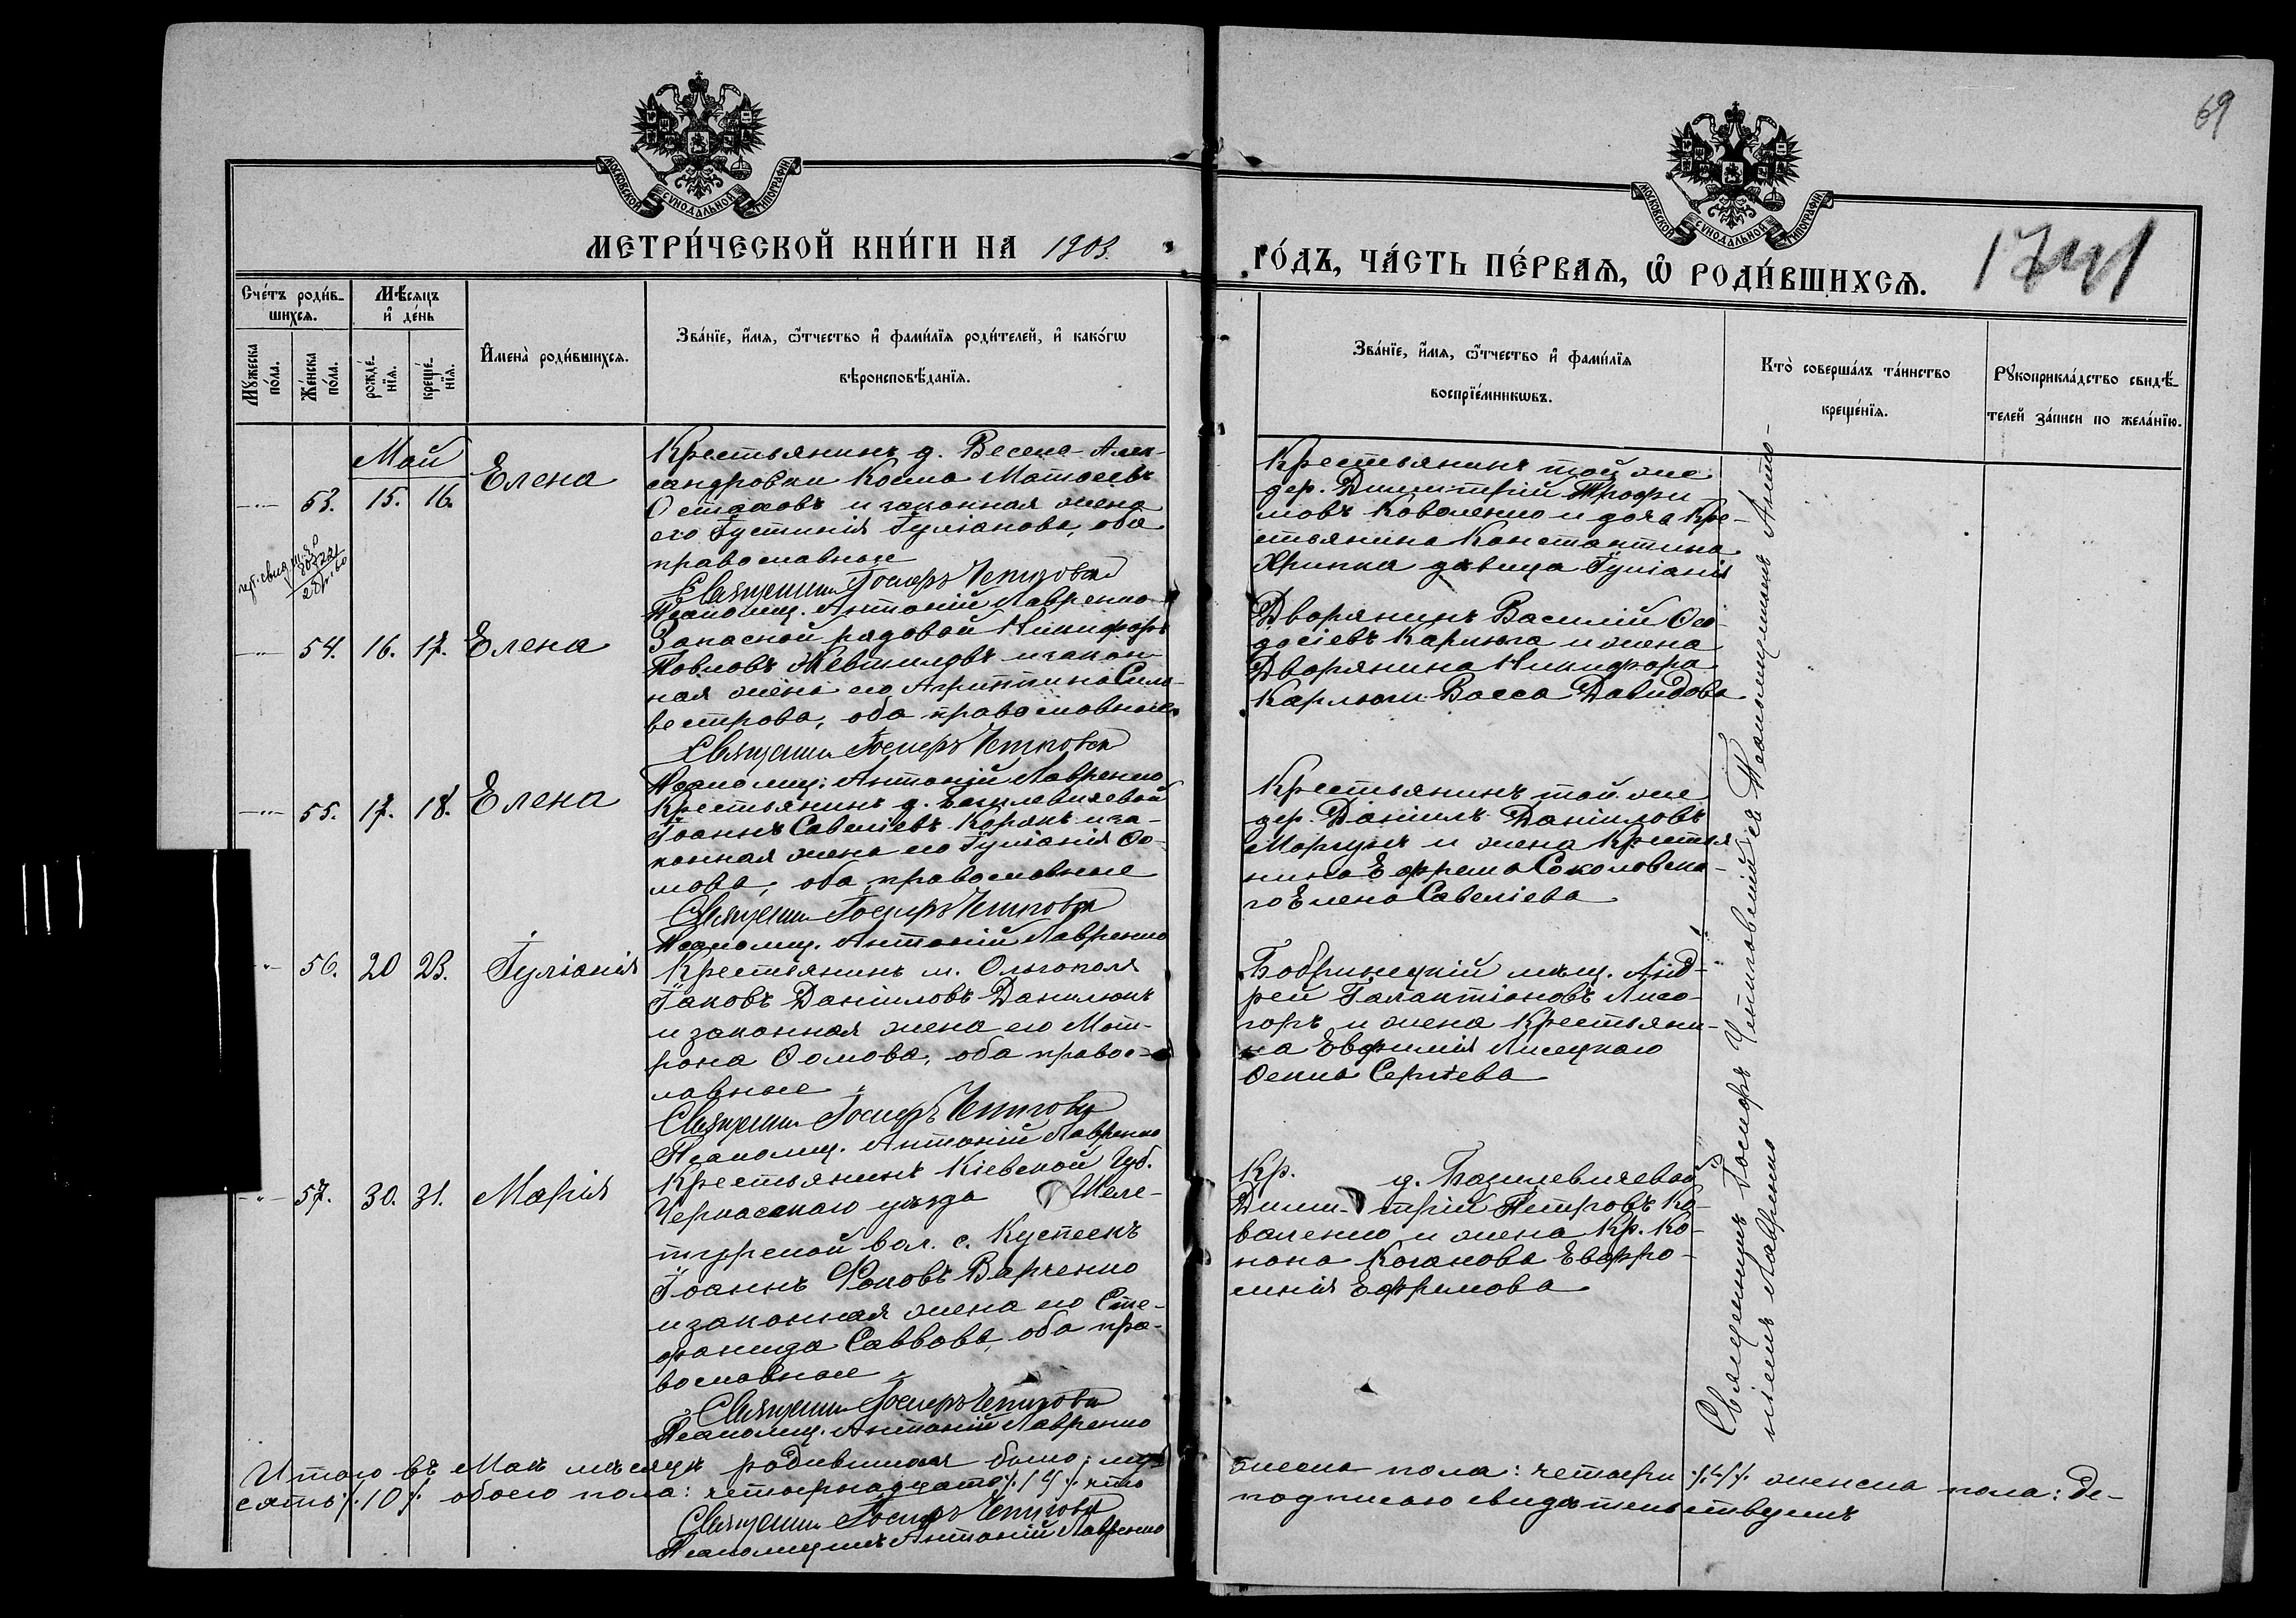 69
МОСКОВСКОЙ СУНОДАЛЬНОЙ ТИПОГРАФІИ
МОСКОВСКОЙ СУНОДАЛЬНОЙ ТИПОГРАФІИ
МЕТРИ́ЧЕСКОЙ КНИ́ГИ НА 1903.
ГО́ДЪ, ЧА́СТЬ ПЕ́РВАѦ, Ѡ҆ РОДИ́ВШИХСѦ.
Сче́тъ роди́в-
шихсѧ.
Мѣ́сѧцъ
и҆ де́нь
Мꙋ́жеска
по́ла.
Же́нска
по́ла.
рожде́-
нїѧ.
креще́-
нїѧ.
И҆мена̀ роди́вшихсѧ.
Зва́нїе, и҆́мѧ, ѻ҆́тчество и҆ фами́лїѧ роди́телей, и҆ како́гѡ
вѣроисповѣ́данїѧ.
Зва́нїе, и҆́мѧ, ѻ҆́тчество и҆ фами́лїѧ
воспрїе́мникѡвъ.
Кто̀ соверша́лъ та́инство
креще́нїѧ.
Рꙋкоприкла́дство свидѣ́-
телей за́писи по жела́нїю.
Май
53. 15. 16. Елена
Крестьянинъ д. Весело-Алек-
сандровки Косма Матѳеевъ
Остаховъ и законная жена
его Іустинія Іуліанова, оба
православные
Священникъ Іосифъ
Псаломщ. Антоній Лавренко
Крестьянинъ той же
дер. Димитрій Трофи-
мовъ Коваленко и дочь кре-
стьянина Константина
Хрипка дѣвица Іуліанія
54. 16. 17. Елена
Запасной рядовой Никифоръ
Павловъ и закон-
ная жена его Агриппина Силь-
вестрова, оба православные
Священникъ Іосифъ
Псаломщ. Антоній Лавренко
Дворянинъ Василій Ѳео-
досіевъ Карлюга и жена
Дворянина Никифора
Карлюги Васса Давидова
55. 17. 18. Елена
Крестьянинъ д. Базилевичевой
Іоаннъ Савеліевъ Корякъ и за-
конная жена его Іуліанія Ѳо-
мова, оба православные
Священникъ Іосифъ
Псаломщ. Антоній Лавренко
Крестьянинъ той же
дер. Даніилъ Даніиловъ
Моргунъ и жена крестья-
нина Ефрема Соколовска-
го Елена Савеліева
56. 20 23. Іуліанія
Крестьянинъ м. Ольгополя
Іаковъ Даніиловъ Данилюкъ
и законная жена его Мат-
рона Ѳомова, оба правос-
лавные
Священникъ Іосифъ
Псаломщ. Антоній Лавренко
Бобринецкій мѣщ. Анд-
рей Галактіоновъ Лисо-
горъ и жена крестьяни-
на Евфимія Лисецкаго
Ѳекла Сергіева
57. 30. 31. Марія
Крестьянинъ Кіевской Губ.
Черкасскаго уѣзда Шеле-
пугской вол. с.
Іоаннъ Фоковъ Варченко
и законная жена его Сте-
фанида Саввова, оба пра-
вославные
Священникъ Іосифъ
Псаломщ. Антоній Лавренко
Кр. д. Базилевичевой
Дими-трій Петровъ Ко-
валенко и жена кр. Ко-
нона Коганова Евфро-
синія Ефремова
Священникъ Іосифъ съ Псаломщикомъ Анто-
ніемъ Лавренко
Итого въ Маѣ мѣсяцѣ родившихся было: муж
скаго пола: четыре /.4/. женска пола: де-
сять /.10/. обоего пола: четырнадцать /.14/. что
подписью свидѣтельствуемъ
Священникъ Іосифъ
Псаломщикъ Антоній Лавренко